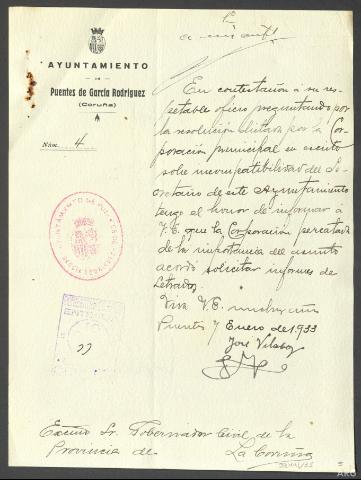 AYUNTAMIENTO
DE
Puentes de García Rodríguez
(Coruña)
Núm. 4
En contestación á su res-
petable oficio preguntando por
la resolución dictada por la Cor-
poración municipal en escrito
sobre incompatibilidad del Se-
cretario de este Ayuntamiento
tengo el honor de informar á
V.E. que la Corporación percatada
de la importancia del asunto
acordó solicitar informes de
Letrados.
Viva V.E. muchos años
Puentes 7 Enero de 1.933
José Vilaboy
AYUNTAMIENTO DE PUENTES DE
GARCIA RODRIGUEZ
Excmo Sr. Gobernador Civil de la
Provincia de La Coruña